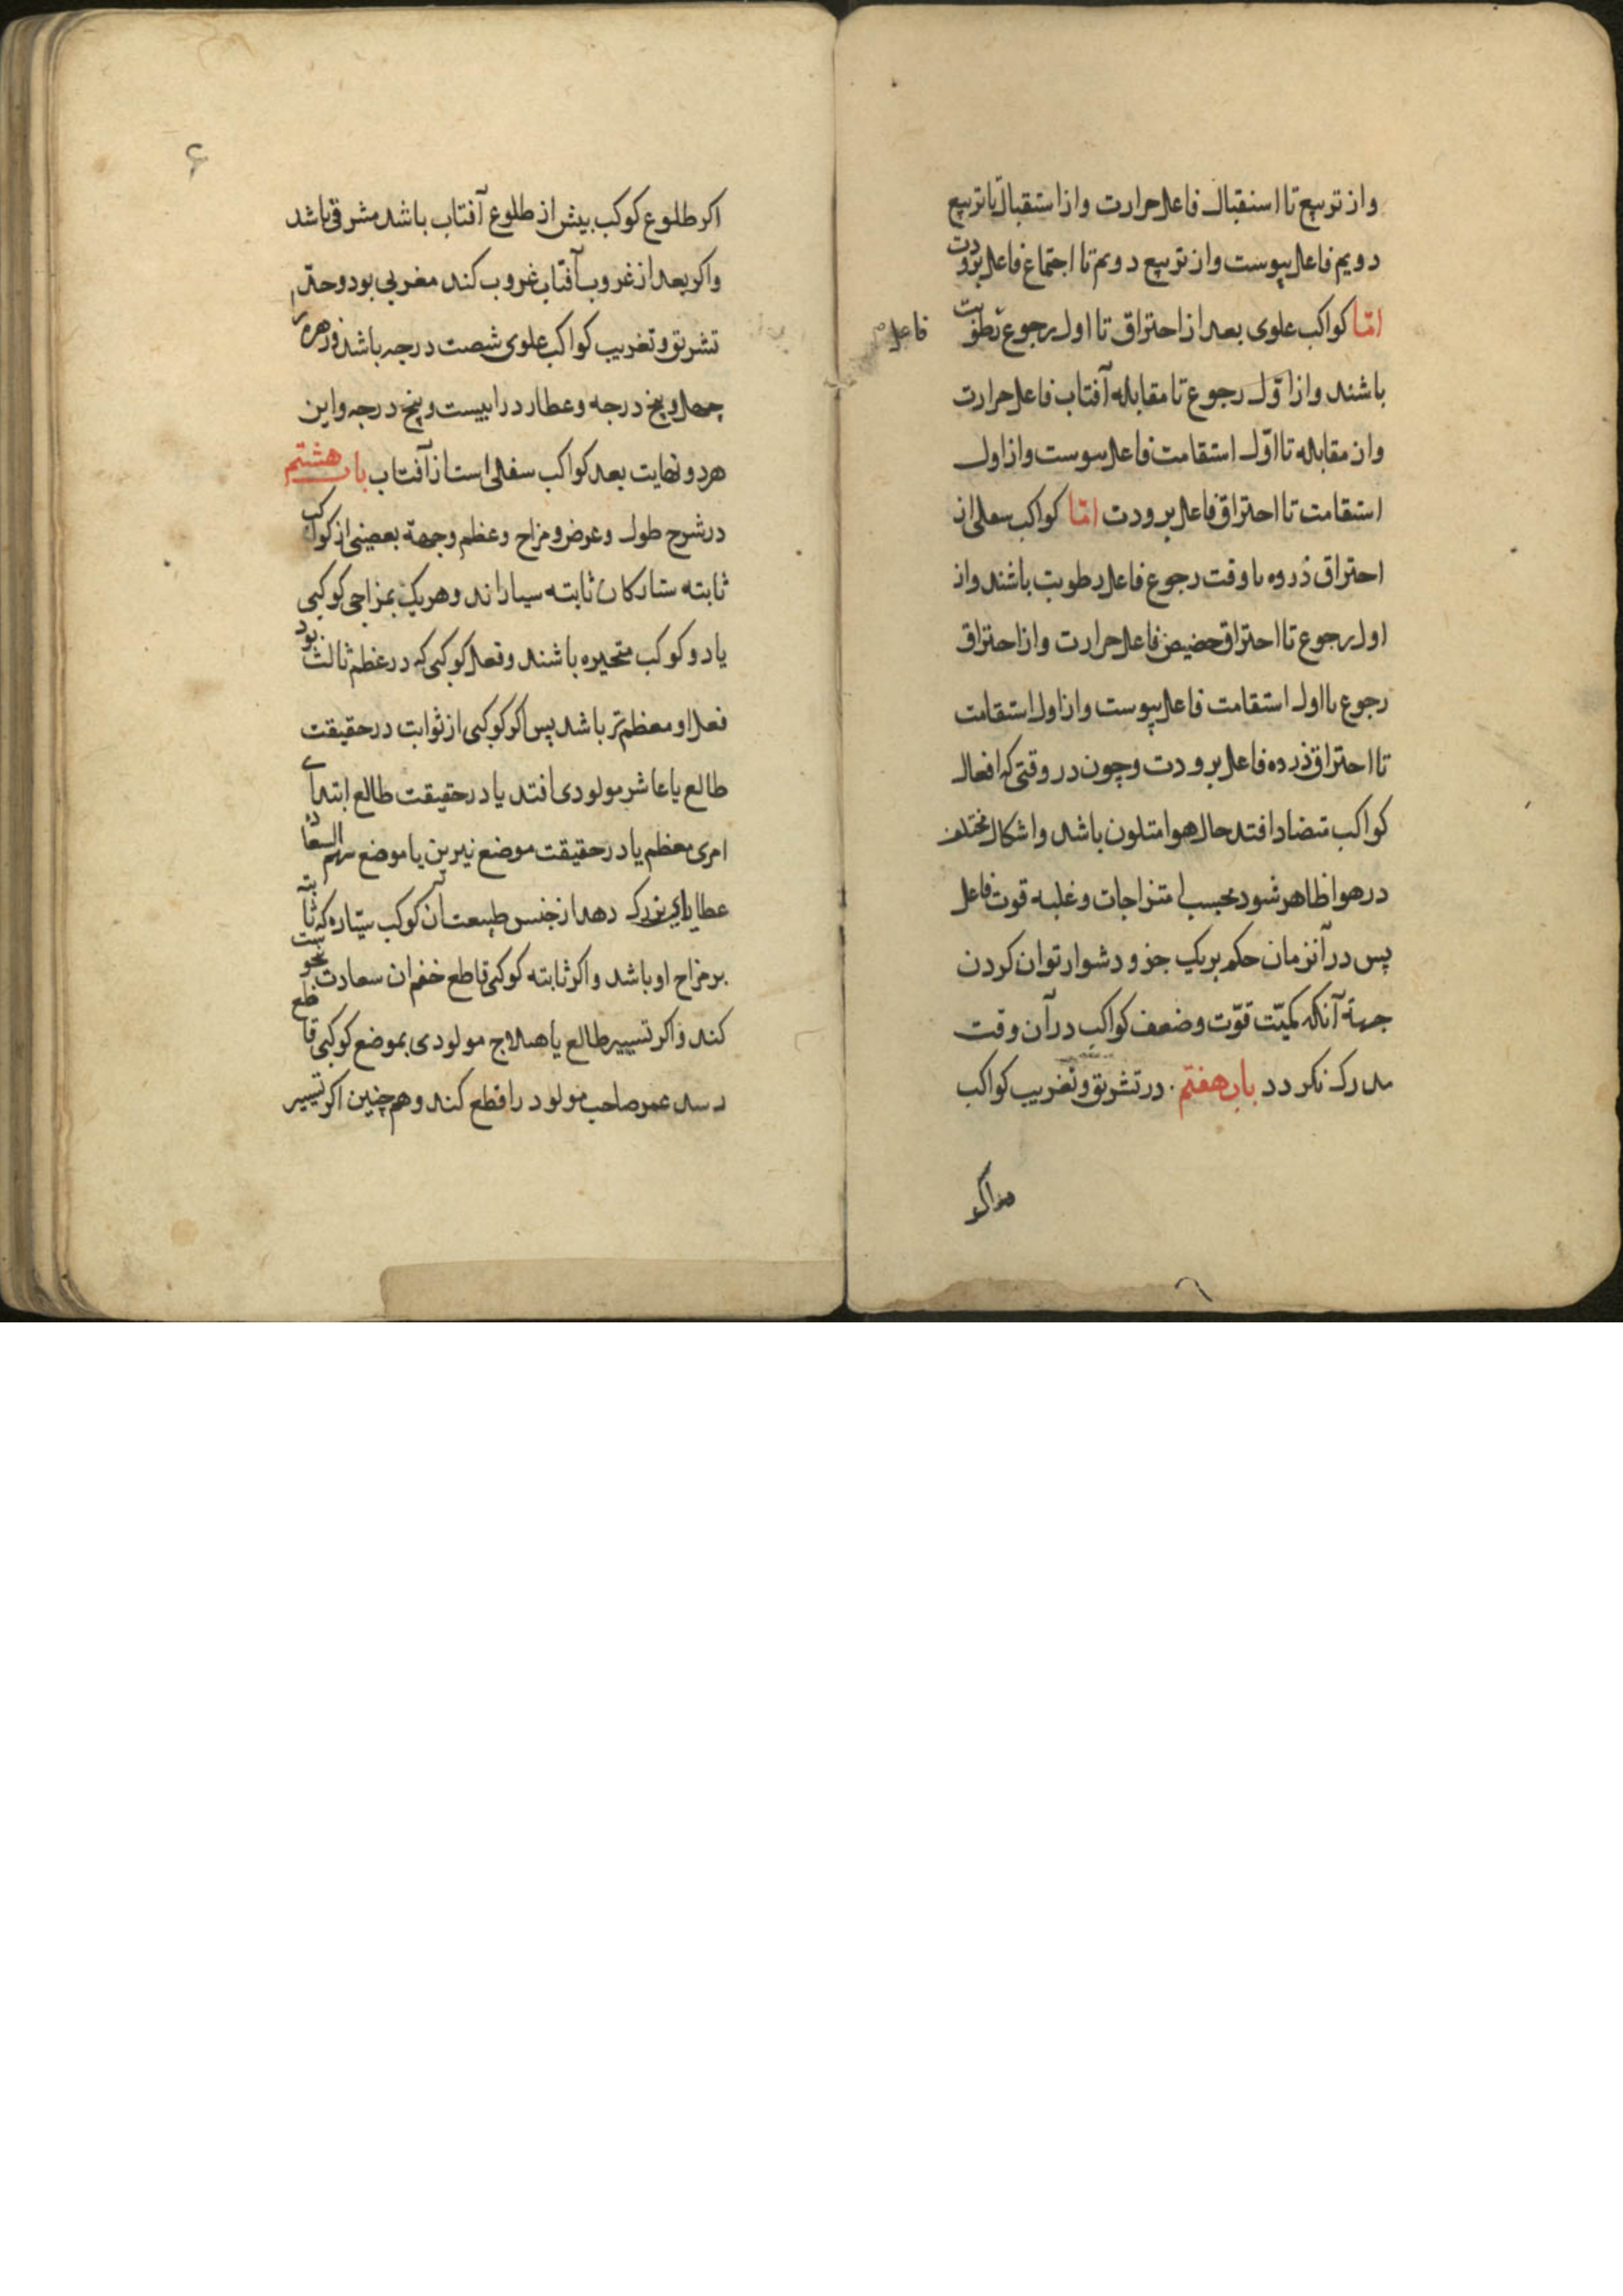 واز تربیع تا استقبال فاعل حرارت واز استقبال تا تربیع
دویم فاعل یبوست واز تربیع دویم تا اجتماع فاعل برودت
امّا کواکب علوی بعد از احتراق تا اول رجوع رطوبت
فاعل
باشند واز اوّل رجوع تا مقابله آفتاب فاعل حرارت
واز مقابله تا اوّل استقامت فاعل یبوست واز اول
استقامت تا احتراق فاعل برودت امّا کواکب سفلی از
احتراق ذروه تا وقت رجوع فاعل رطوبت باشند واز
اول رجوع تا احتراق حضیض فاعل حرارت واز احتراق
رجوع تا اول استقامت فاعل یبوست واز اول استقامت
تا احتراق ذروه فاعل برودت وچون در وقتی که افعال
کواکب متضاد افتد حال هوا متلون باشد واشکال مختلف
در هوا ظاهر شود بحسب امتزاجات وغلبه قوت فاعل
پس در آنزمان حکم بریک جزو دشوار توان کردن
جهة آنکه کمیّت قوّت وضعف کواکب در آن وقت
مدرک نکردد باب هفتم در تشریق وتغریب کواکب
اکر طلوع کوکب بیش از طلوع آفتاب باشد مشرقی باشد
واکر بعد از غروب آفتاب غروب کند مغربی بود وحدّ
تشریق وتغریب کواکب علوی شصت درجه باشد وزهره
چهل وپنج درجه وعطارد را بیست وپنج درجه واین
هر دو نهایت بعد کواکب سفلی است از آفتاب باب هشتم
در شرح طول وعرض ومزاج وعظم وجهة بعضی از کواکب
ثابته ستارکان ثابته بسیاراند وهریک بمزاجی کوکبی
یا دو کوکب متحیره باشند وفعل کوکبی که در عظم ثالث بود
فعل او معظم تر باشد پس اکر کوکبی از ثوابت در حقیقت
طالع یا عاشر مولودی افتد یا در حقیقت طالع ابتدای
امری معظم یا در حقیقت موضع نیرین یا موضع سهم السعاده
عطایای بزرک دهد از جنس طبیعت آن کوکب سیّاره که ثابته
بر مزاج او باشد واکر ثابته کوکبی قاطع ختم آن سعادت نحوست
کند واکر تسییر طالع یا هیلاج مولودی بموضع کوکبی قاطع
رسد عمر صاحب مولود را قطع کند وهم چنین اکر تسییر